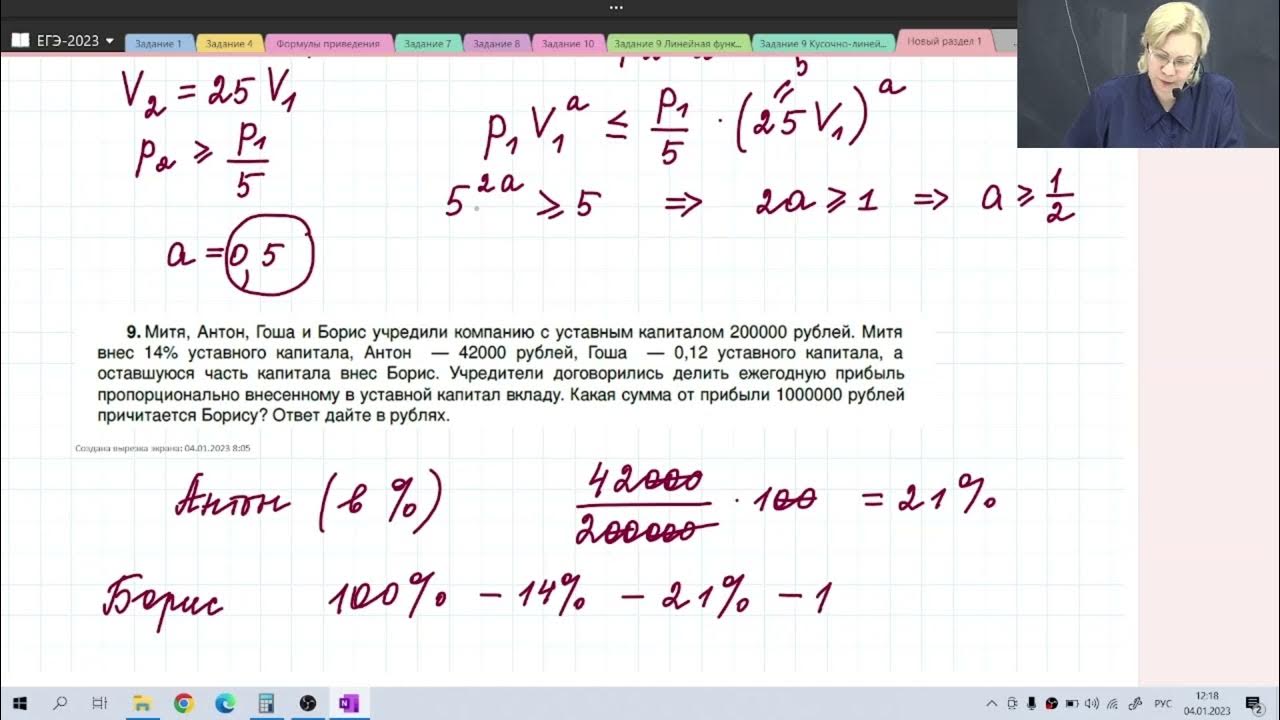 ЕГЭ-2023
Задание 1
Задание 4
Формулы приведения
Задание 7
Задание 8
Задание 10
Задание 9 Линейная функ...
Задание 9 Кусочно-линей...
Новый раздел 1
V₂ = 25 V₁
p₂ ≥ p₁/5
a = 0,5
5
p₁ V₁^a ≤ p₁/5 · (25 V₁)^a
5^2a ≥ 5 ⇒ 2a ≥ 1 ⇒ a ≥ 1/2
9. Митя, Антон, Гоша и Борис учредили компанию с уставным капиталом 200000 рублей. Митя
внес 14% уставного капитала, Антон — 42000 рублей, Гоша — 0,12 уставного капитала, а
оставшуюся часть капитала внес Борис. Учредители договорились делить ежегодную прибыль
пропорционально внесенному в уставной капитал вкладу. Какая сумма от прибыли 1000000 рублей
причитается Борису? Ответ дайте в рублях.
Создана вырезка экрана: 04.01.2023 8:05
Антон (в %) 42000/200000 · 100 = 21%
Борис 100% − 14% − 21% − 1
РУС
12:18
04.01.2023
2